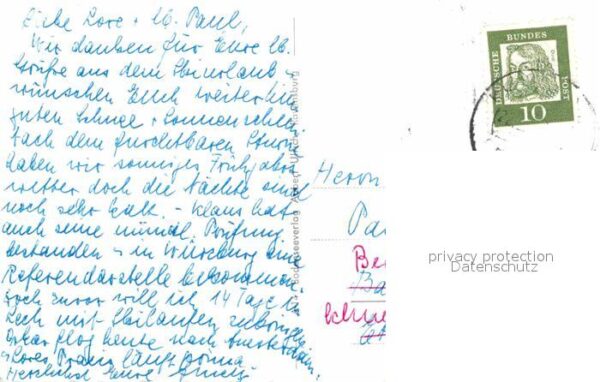 Liebe Lore + lb. Paul,
Wir danken für Eure lb.
Grüße aus dem Skiurlaub &
wünschen Euch weiterhin
guten Schnee + Sonnenschein.
Nach dem furchtbaren Sturm
haben wir sonniges Frühjahrs
wetter doch die Nächte sind
noch sehr kalt. - Klaus hat
auch seine mündl. Prüfung
bestanden & in Würzburg eine
Referendarstelle bekommen.
noch zuvor will ich 14 Tage in
Lech mit Skilaufen
flog heute nach
Lores Praxis läuft prima
Herzlichst Eure
Herrn
Pa
Be
Ba
Schne
DEUTSCHE
BUNDES
POST
10
privacy protection
Datenschutz